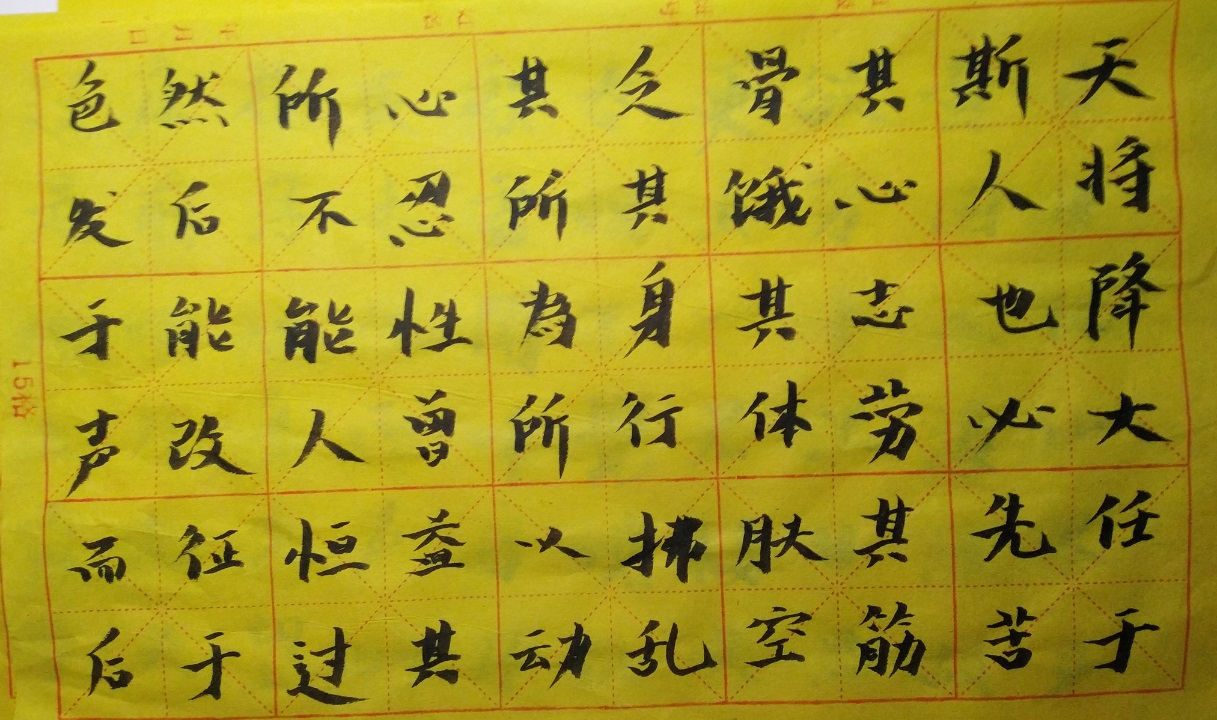 天将降大任于
斯人也必先苦
其心志劳其筋
骨饿其体肤空
乏其身行拂乱
其所為所以动
心忍性曾益其
所不能人恒过
然后能改征于
色发于声而后
15格